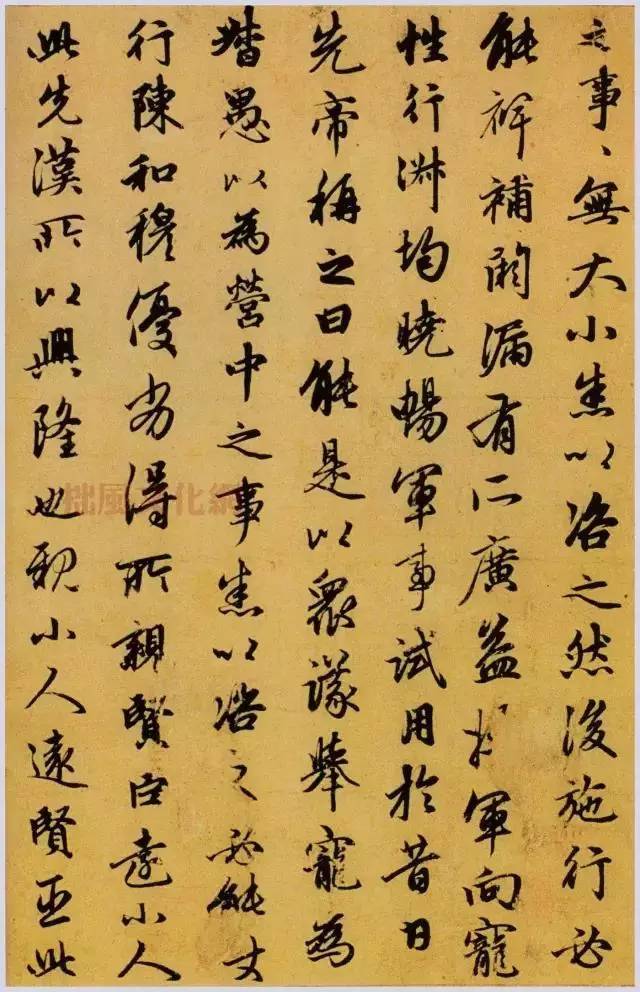 之事、無大小悉以咨之然後施行必
能裨補闕漏有所廣益將軍向寵
性行淑均曉暢軍事試用於昔日
先帝稱之曰能是以眾議舉寵為
督愚以為營中之事悉以咨之必能使
行陳和穆優劣得所親賢臣遠小人
此先漢所以興隆也親小人遠賢臣此
拙風文化網